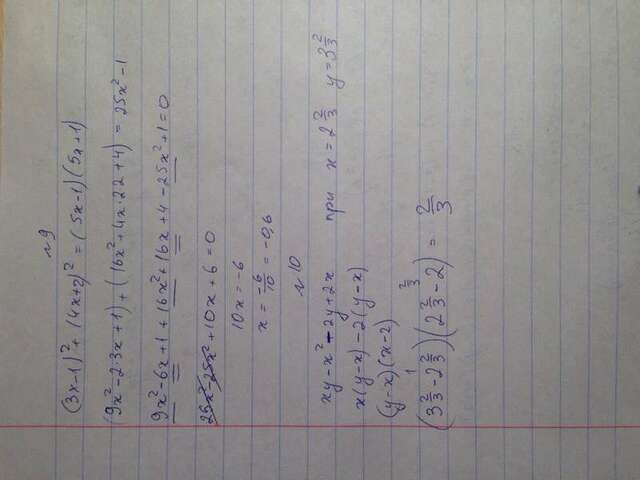 № 9
(3x-1)² + (4x+2)² = (5x-1)(5x+1)
(9x²-2·3x+1) + (16x²+4x·22+4) = 25x²-1
9x²-6x+1+16x²+16x+4-25x²+1=0
25x²-25x²+10x+6=0
10x=-6
x = -6/10 = -0,6
№ 10
xy-x²-2y+2x при x=2 2/3 y=3 2/3
x(y-x)-2(y-x)
(y-x)(x-2)
1 2/3
(3 2/3 - 2 2/3)(2 2/3 - 2) = 2/3